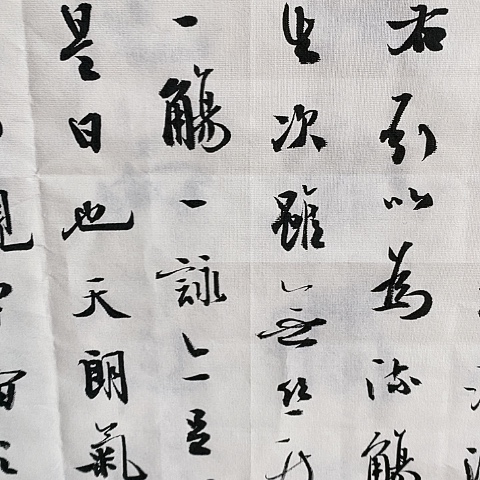 右引以為流觴
其次雖無絲竹
一觴一詠亦足
是日也天朗氣